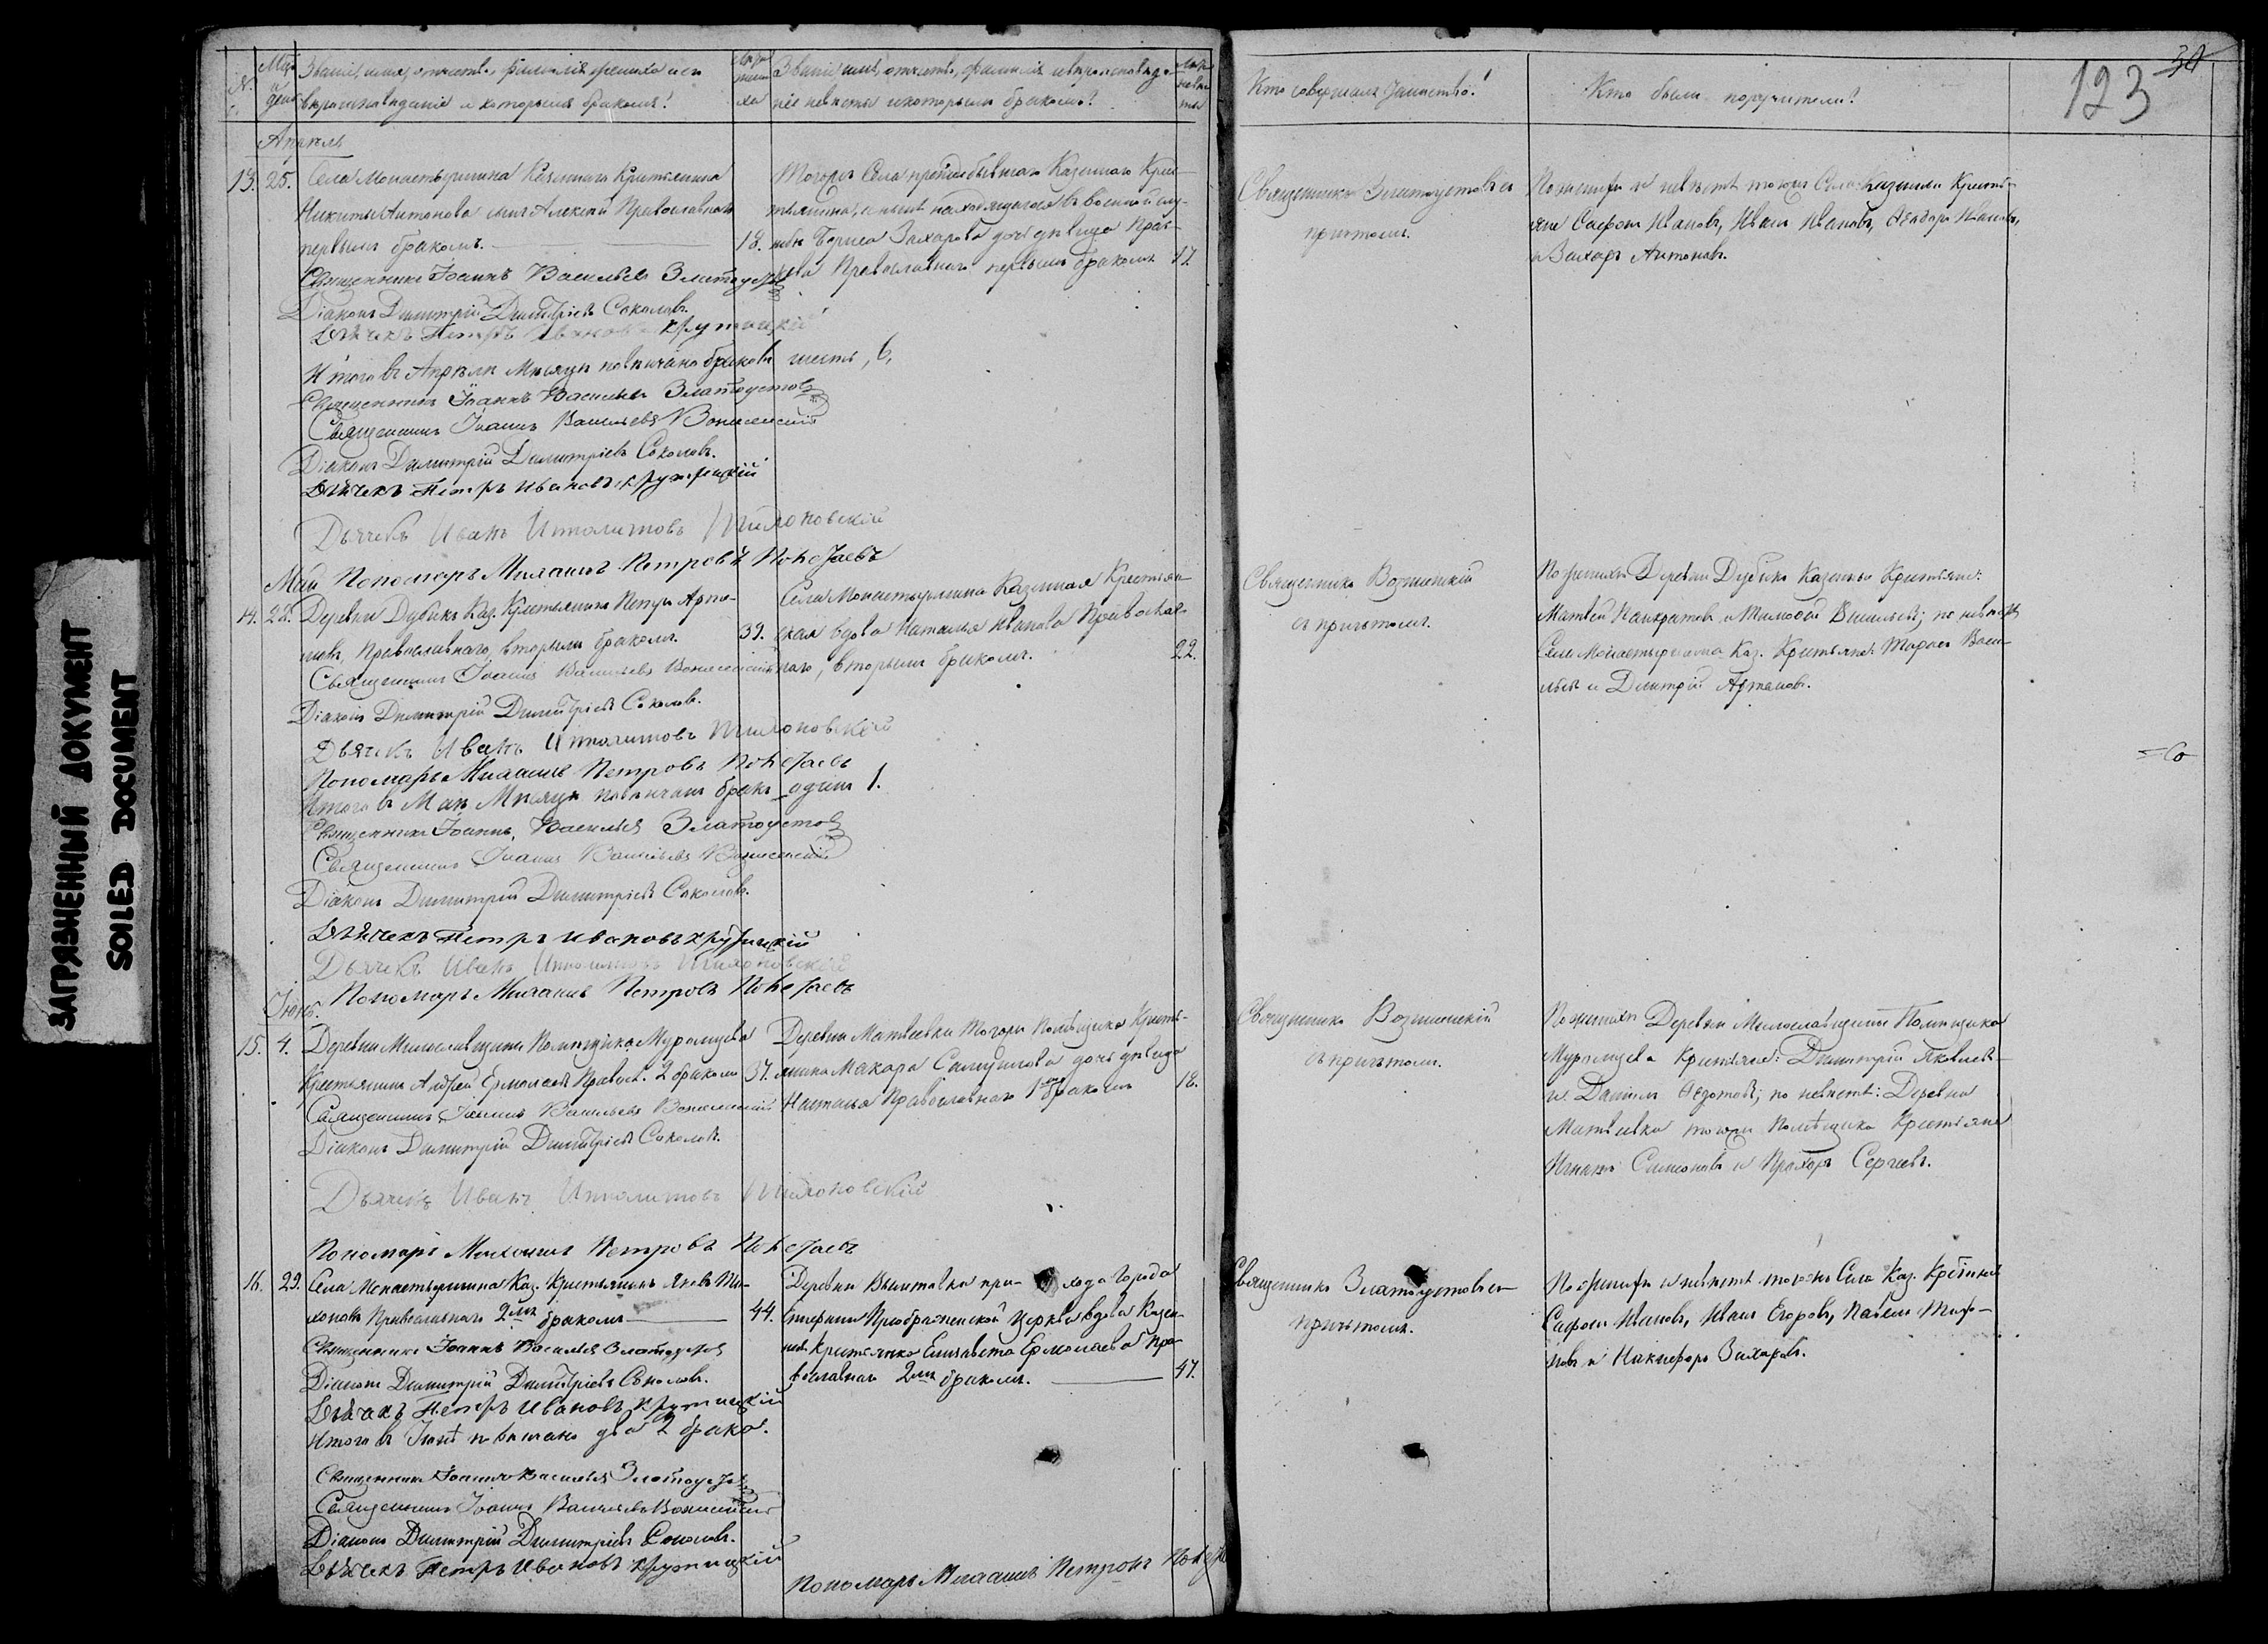 ЗАГРЯЗНЕННЫЙ ДОКУМЕНТ
SOILED DOCUMENT
Званіе, имя, отчество, фамилія жениха и
вѣроисповѣданіе и которымъ бракомъ?
Званіе, имя, отчество, фамилія и вѣроисповѣда-
ніе невѣсты и которымъ бракомъ?
Кто совершалъ таинство?
Кто были поручители?
123
30
Апрѣль
13. 25. Села Монастырщина Казеннаго Крестьянина
Никиты Антонова сынъ Алексѣй Православнаго
первымъ бракомъ.
18.
Тогожъ Села прежде бывшаго Казеннаго Крес-
тьянина, а нынѣ находящагося въ военной слу-
жбѣ Бориса Захарова дочь дѣвица
Православнаго первымъ бракомъ
17
Священникъ Златоустовъ съ
причтомъ.
По женихѣ и невѣстѣ тогожъ Села Казенные Кресть-
яне Сафонъ Ивановъ, Иванъ Ивановъ, Ѳедоръ Ивановъ,
и Захаръ Антоновъ.
Священникъ Іоаннъ Васильевъ Златоустовъ
Діаконъ Димитрій Димитріевъ Соколовъ.
Дьячекъ Петръ Ивановъ Крутицкій
Итого въ Апрѣлѣ Мѣсяцѣ повѣнчано браковъ шесть, 6.
Священникъ Іоаннъ Васильевъ Златоустовъ
Священникъ Іоаннъ Васильевъ Вознесенскій
Діаконъ Димитрій Димитріевъ Соколовъ.
Дьячекъ Петръ Ивановъ Крутицкій
Дьячекъ Иванъ Ипполитовъ
Пономарь Михаилъ Петровъ
Май
14. 22. Деревни Дубикъ Каз. Крестьянинъ Петръ Арте-
мовъ, Православнаго, вторымъ бракомъ.
39.
Села Монастырщина Казенная Крестьян-
ская вдова Наталья Иванова Православ-
наго, вторымъ бракомъ.
22.
Священникъ Вознесенскій
съ причтомъ.
По женихѣ Деревни Дубика Казенные Крестьяне:
Матвей Панкратовъ и Тимофей Васильевъ; по невѣстѣ
Села Монастырщина Каз. Крестьяне: Тарасъ Васи-
льевъ и Дмитрій Артамовъ.
Священникъ Іоаннъ Васильевъ Вознесенскій
Діаконъ Димитрій Димитріевъ Соколовъ.
Дьячекъ Иванъ Ипполитовъ
Пономарь Михаилъ Петровъ
Итого въ Маѣ Мѣсяцѣ повѣнчанъ бракъ одинъ 1.
Священникъ Іоаннъ Васильевъ Златоустовъ
Священникъ Іоаннъ Васильевъ Вознесенскій
Діаконъ Димитрій Димитріевъ Соколовъ.
Дьячекъ Петръ Ивановъ Крутицкій
Дьячекъ Иванъ Ипполитовъ
Пономарь Михаилъ Петровъ
Іюнь.
15. 4. Деревни Милославщины Помѣщика Муромцева
Крестьянинъ Андрей Ермолаевъ Правосл. 2 бракомъ
37.
Деревни Матвѣевки тогожъ Помѣщика Кресть-
янина Макара Самуилова дочь дѣвица
Наталья Православнаго 1 бракомъ
18.
Священникъ Вознесенскій
съ причтомъ.
По женихѣ Деревни Милославщины Помѣщика
Муромцева Крестьяне: Димитрій Яковлевъ
и Даніилъ Ѳедотовъ; по невѣстѣ: Деревни
Матвѣевки тогожъ Помѣщика Крестьяне
Игнатъ Симеоновъ и Прохоръ Сергѣевъ.
Священникъ Іоаннъ Васильевъ Вознесенскій
Діаконъ Димитрій Димитріевъ Соколовъ.
Дьячекъ Иванъ Ипполитовъ
Пономарь Михаилъ Петровъ
16. 29. Села Монастырщина Каз. Крестьянинъ Яковъ Ти-
хоновъ Православнаго 2мъ бракомъ
44.
Деревни при-хода Города
Епифани Преображенской Церкви вдова Казен-
ная Крестьянка Елизавета Ермолаева Пра-
вославнаго 2мъ бракомъ.
47.
Священникъ Златоустовъ съ
причтомъ.
По женихѣ и невѣстѣ тогожъ Села Каз. Крестьяне
Сафонъ Ивановъ, Иванъ Егоровъ, Павелъ
и Никифоръ Захаровъ.
Священникъ Іоаннъ Васильевъ Златоустовъ
Діаконъ Димитрій Димитріевъ Соколовъ.
Дьячекъ Петръ Ивановъ Крутицкій
Итого въ Іюнѣ повѣнчано два 2 брака.
Священникъ Іоаннъ Васильевъ Златоустовъ
Священникъ Іоаннъ Васильевъ Вознесенскій
Діаконъ Димитрій Димитріевъ Соколовъ.
Дьячекъ Петръ Ивановъ Крутицкій
Пономарь Михаилъ Петровъ